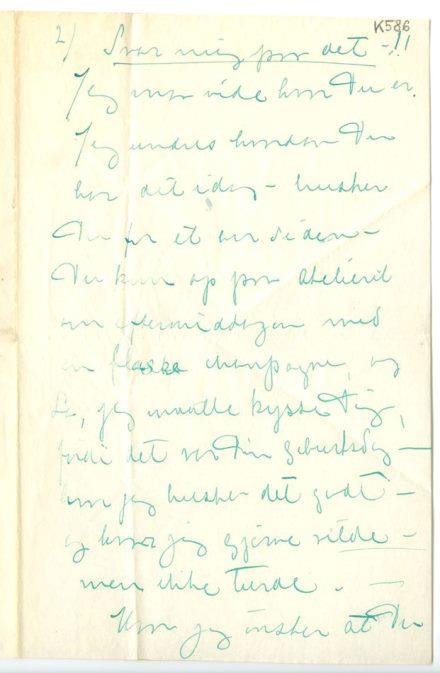 K586
2) Svar mig paa det -!!
Jeg maa vide hvor Du er.
Jeg undres hvordan Du
har det idag - husker
Du for et aar siden -
Du kom op paa atelieret
om eftermiddagen med
en flaske champagne, og
Du, jeg maatte kysse Dig,
fordi det var Din geburtsdag -
hvor jeg husker det godt -
og hvor jeg gjerne vilde -
men ikke turde. -
Hvor jeg ønsker at Du